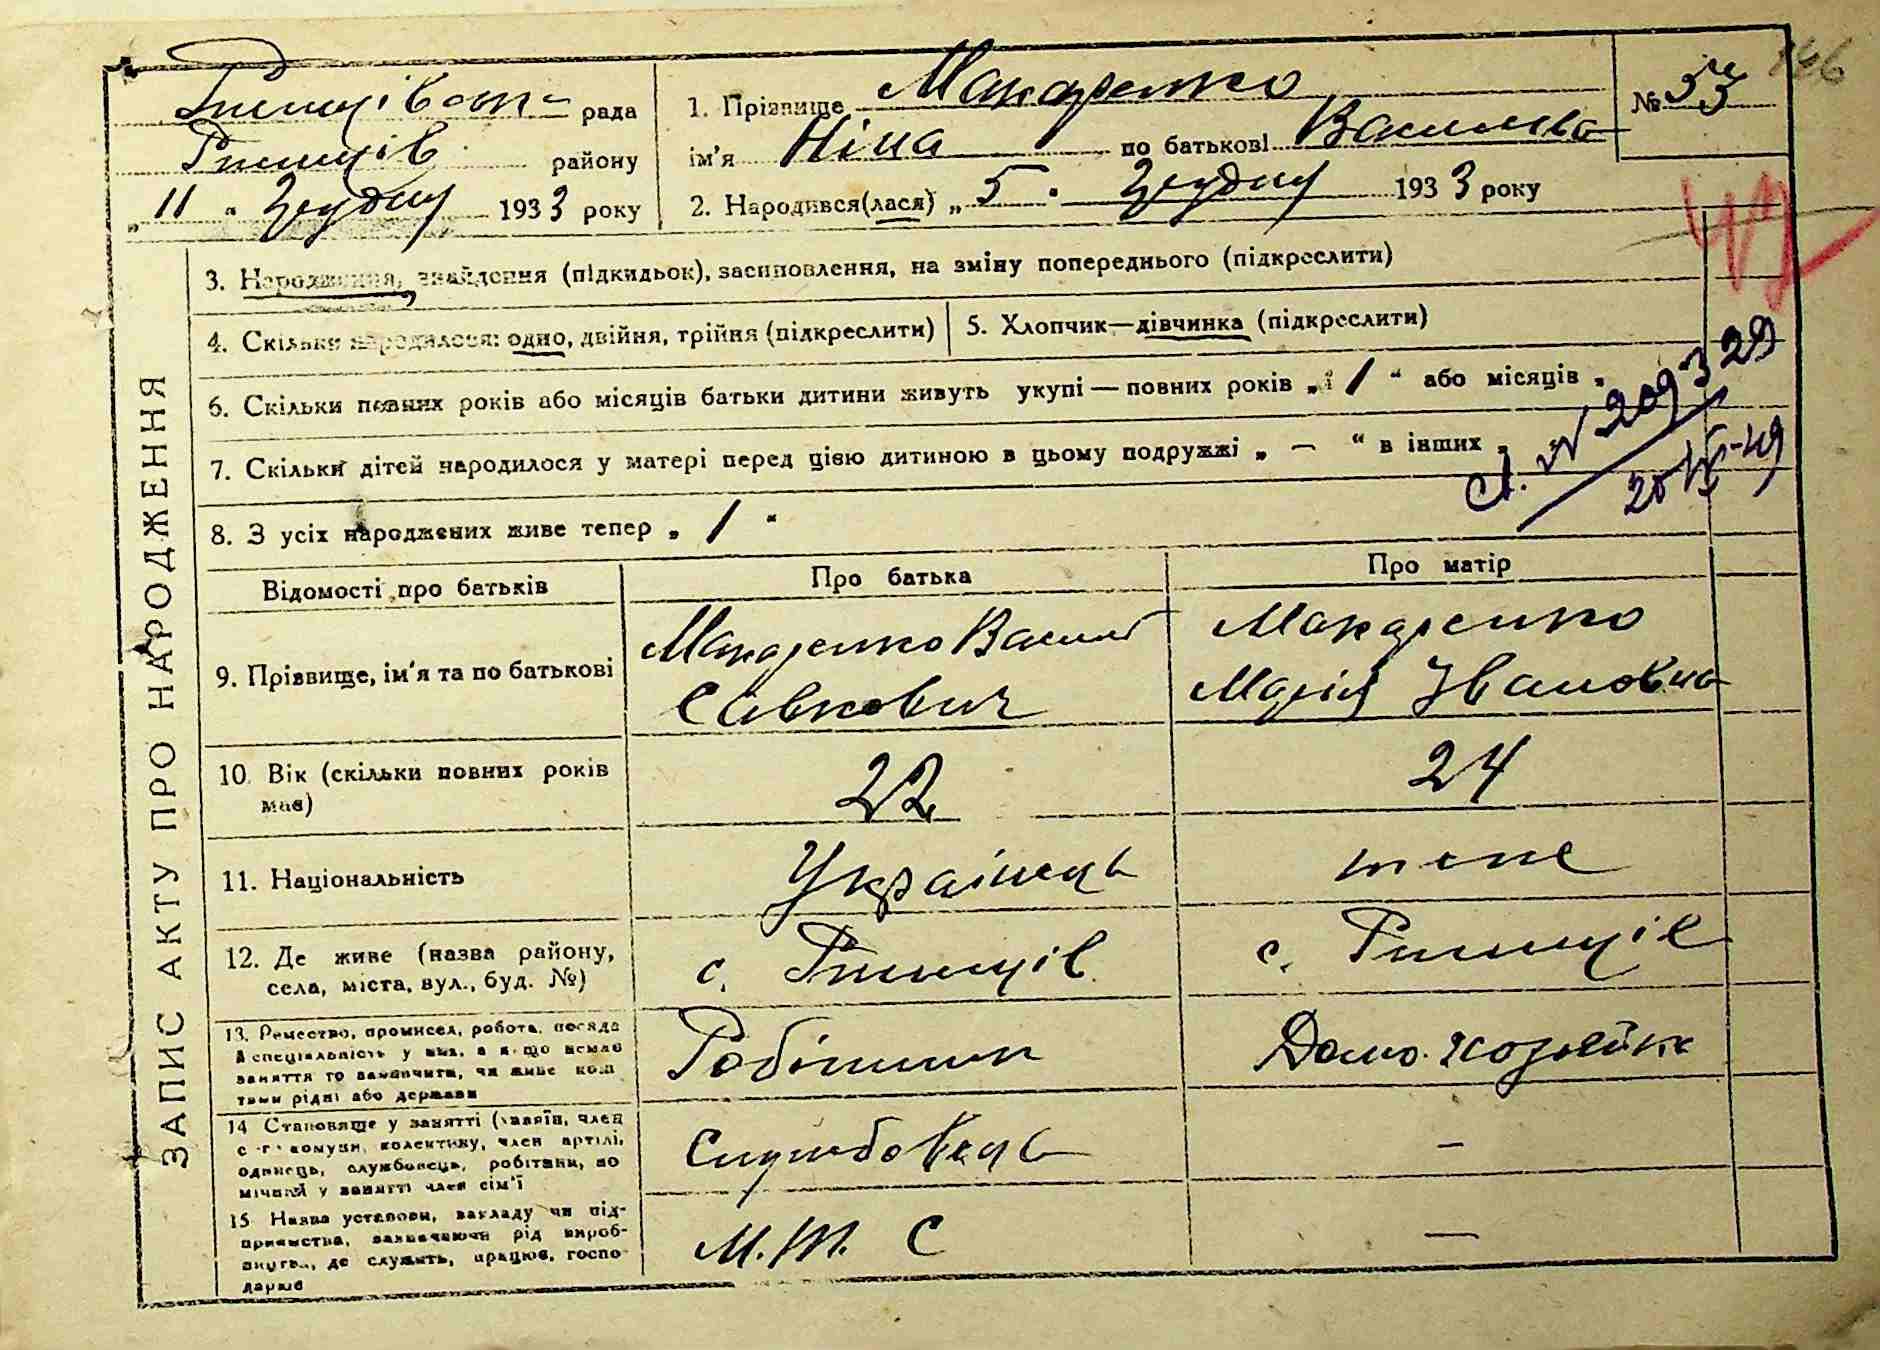 146
рада
1. Прізвище Макаренко
№ 53
Ршищів району
ім'я Ніна по батькові Васильев
„ 11 “ Грудня 1933 року
2. Народився(лася) „ 5 “ Грудня 1933 року
ЗАПИС АКТУ ПРО НАРОДЖЕННЯ
3. Народження, знайдення (підкидьок), засиновлення, на зміну попереднього (підкреслити)
4. Скільки народилося: одно, двійня, трійня (підкреслити)
5. Хлопчик—дівчинка (підкреслити)
6. Скільки повних років або місяців батьки дитини живуть укупі — повних років „ 1 “ або місяців „
7. Скільки дітей народилося у матері перед цією дитиною в цьому подружжі „ — “ в інших „
8. З усіх народжених живе тепер „ 1 “
Відомості про батьків
Про батька
Про матір
9. Прізвище, ім'я та по батькові
Макаренко Василь
Савкович
Макаренко
Марія Івановна
10. Вік (скільки повних років
має)
22
24
11. Національність
Українець
теж
12. Де живе (назва району,
села, міста, вул., буд. №)
с. Ршищів
с. Ршищів
13. Ремество, промисел, робота, посада
й спеціальність у них, а якщо немає
заняття то зазначити, чи живе кош
тами рідні або держави
Робітник
Домо. хозяйка
14 Становище у занятті (хазяїн, член
с.-г. комуни, колективу, член артілі,
одинець, службовець, робітник, по
мічний у занятті член сім'ї
Службовець
—
15 Назва установи, закладу чи під-
приємства, зазначаючи рід вироб-
ництва, де служить, працює, госпо-
дарює
М. Т. С
—